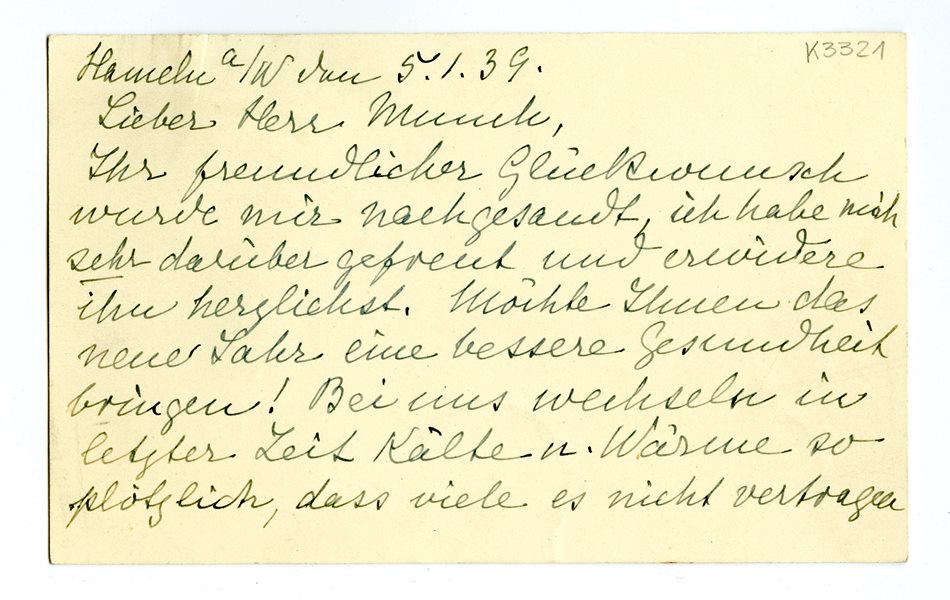 K3321
Hameln a/W den 5.1.39.
Lieber Herr Munch,
Ihr freundlicher Glückwunsch
wurde mir nachgesandt, ich habe mich
sehr darüber gefreut und erwidere
ihn herzlichst. Möchte Ihnen das
neue Jahr eine bessere Gesundheit
bringen! Bei uns wechseln in
letzter Zeit Kälte u. Wärme so
plötzlich, dass viele es nicht vertragen